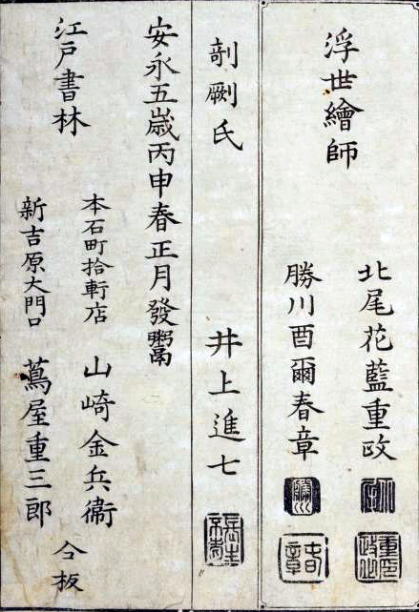 浮世繪師
北尾花藍重政
勝川酉爾春章
春章
剞劂氏
井上進七
安永五歳丙申春正月發鬻
江戸書林
本石町拾軒店 山崎金兵衞
新吉原大門口 蔦屋重三郎
合板